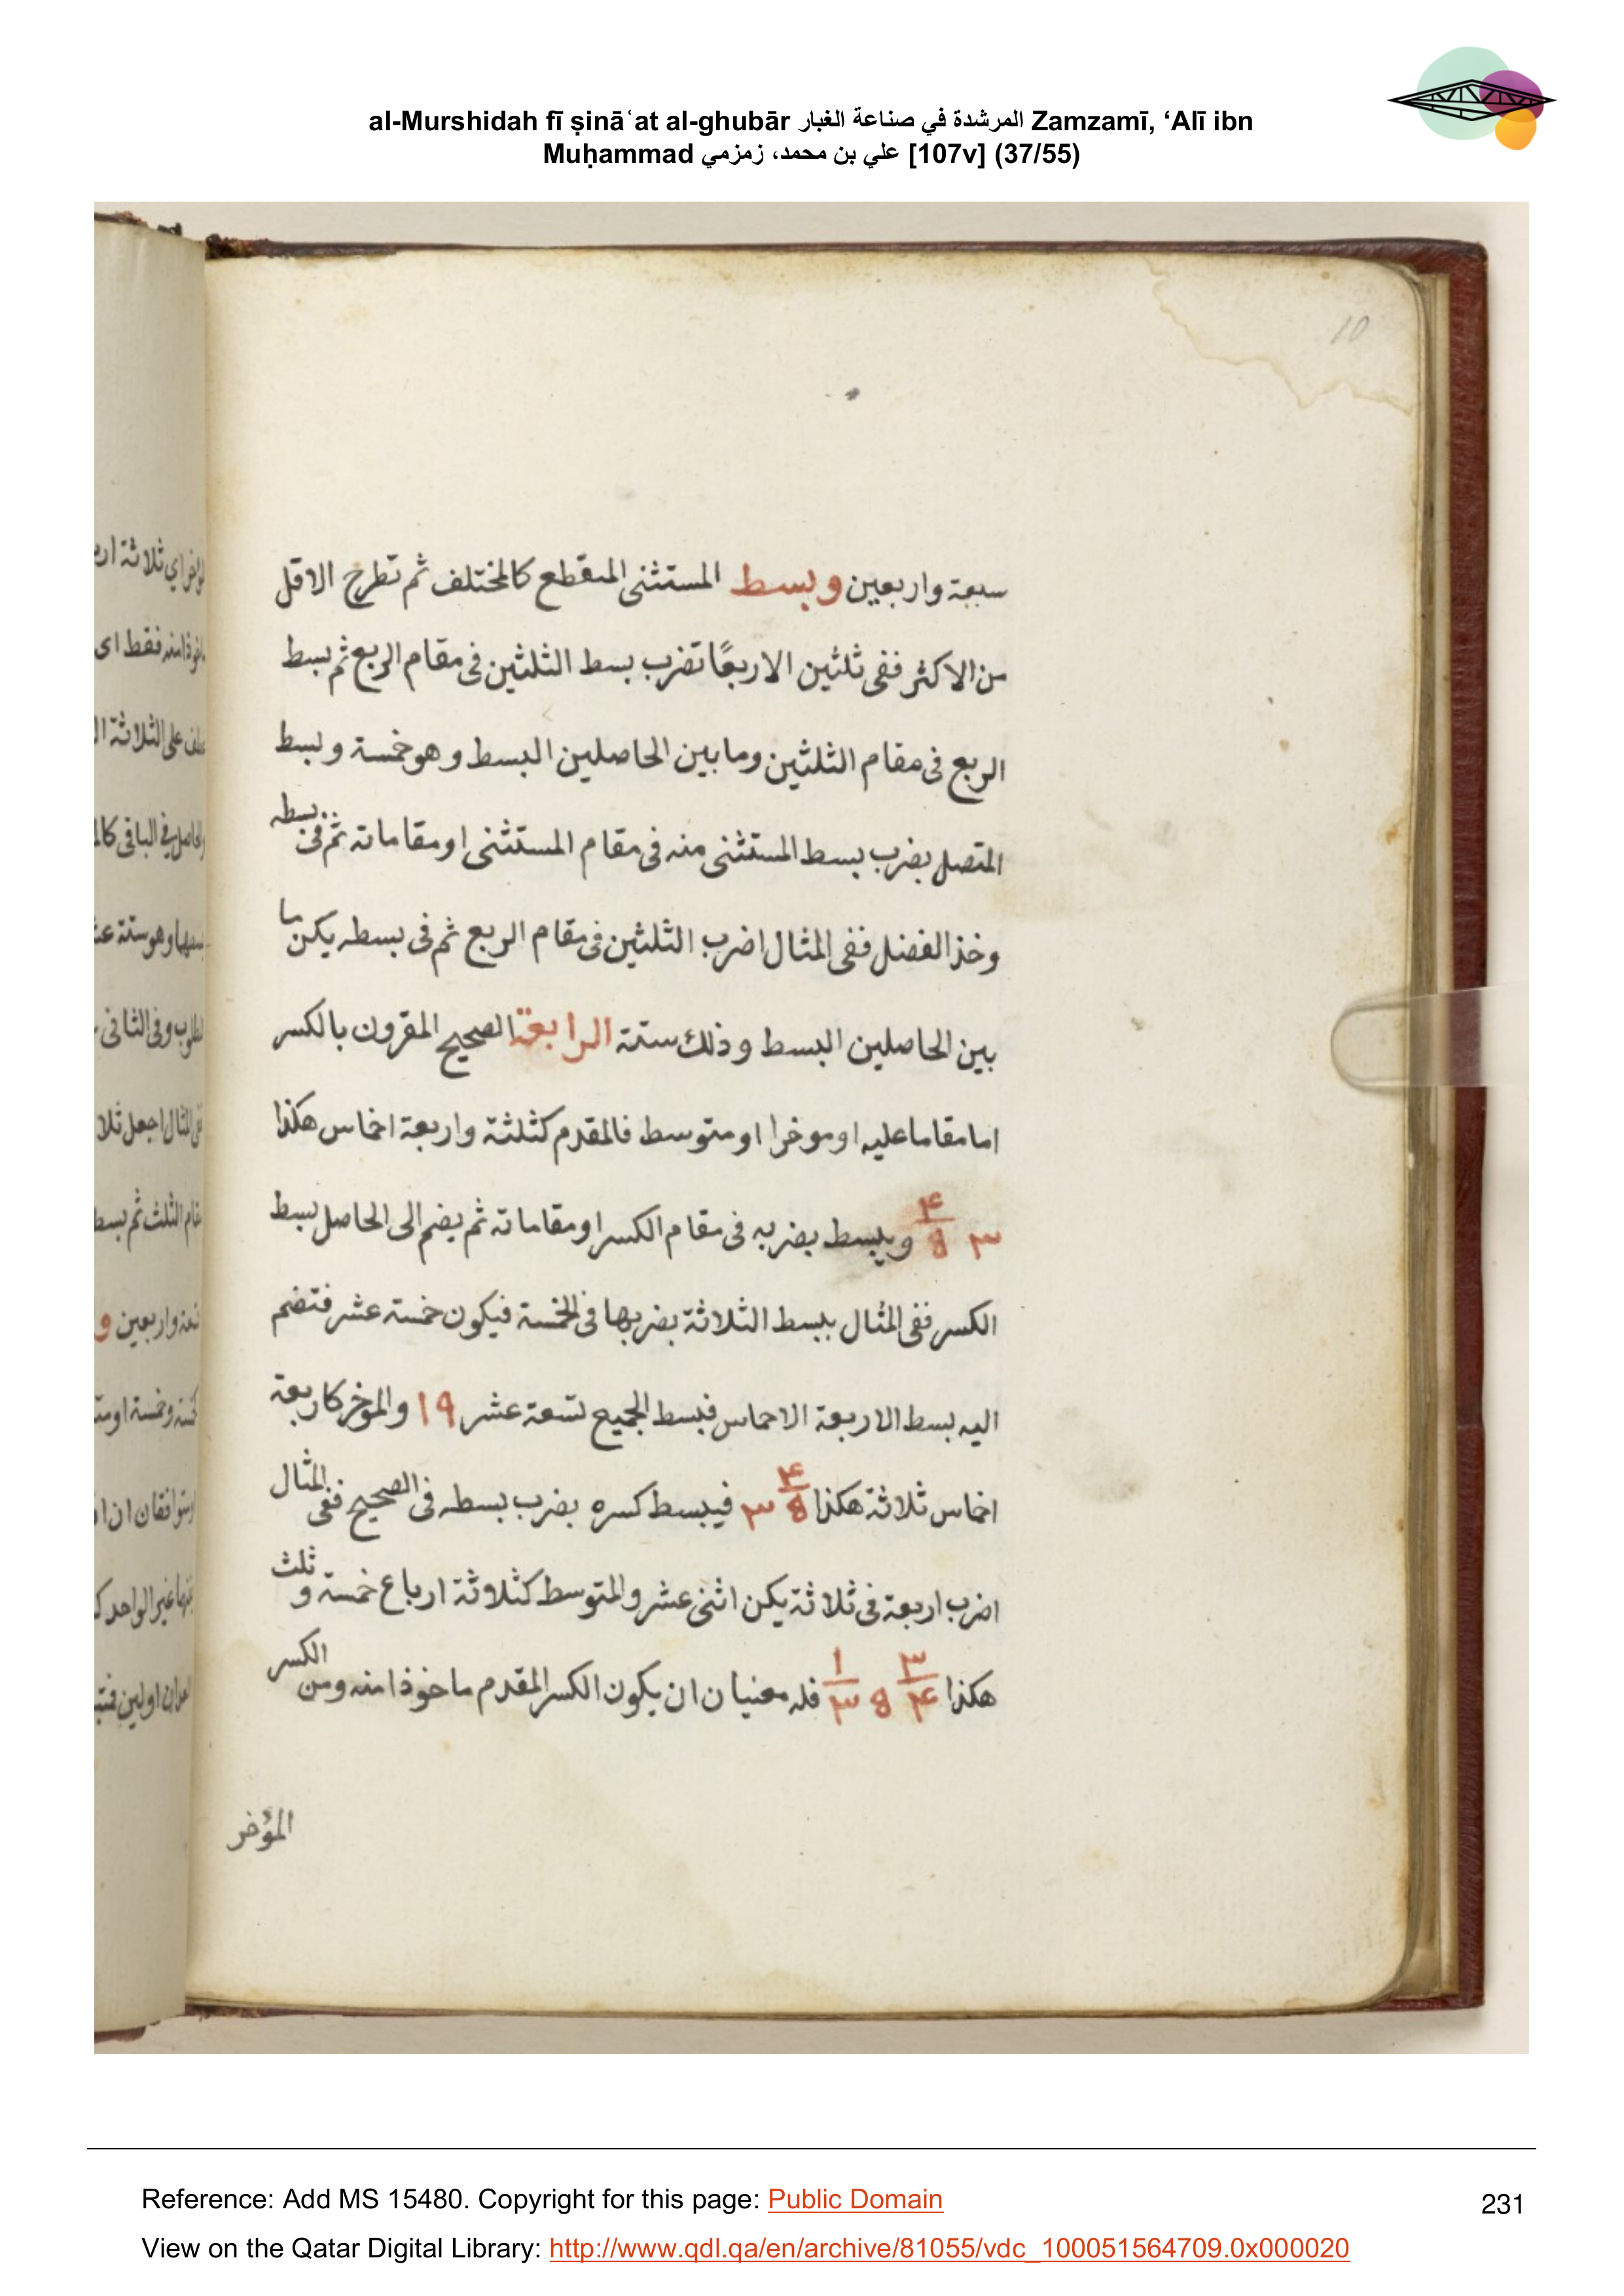 al-Murshidah fī ṣināʿat al-ghubār المرشدة في صناعة الغبار Zamzamī, ‘Alī ibn
Muḥammad علي بن محمد، زمزمي [107v] (37/55)
10
سبعة واربعين وبسط المستثنى المنقطع كالمختلف ثم تطرح الاقل
من الاكثر ففى ثلثين الا ربعًا تضرب بسط الثلثين فى مقام الربع ثم بسط
الربع فى مقام الثلثين وما بين الحاصلين البسط وهو خمسة وبسط
المتصل بضرب بسط المستثنى منه فى مقام المستثنى او مقاماته ثم فى بسطه
وخذ الفضل ففى المثال اضرب الثلثين فى مقام الربع ثم فى بسطه يكن ما
بين الحاصلين البسط وذلك ستة الرابعة الصحيح المقرون بالكسر
اما مقاما عليه او موخرا او متوسط فالمقدم كثلثة واربعة اخماس هكذا
٣ ۴/8 ويبسط بضربه فى مقام الكسر او مقاماته ثم يضم الى الحاصل بسط
الكسر ففى المثال يبسط الثلاثة بضربها فى الخمسة فيكون خمسة عشر فتضم
اليه بسط الاربعة الاحماس فبسط الجميع تسعة عشر ١٩ والموخر كاربعة
اخماس ثلاثة هكذا ۴/8 ٣ فيبسط كسره بضرب بسطه فى الصحيح ففى المثال
اضرب اربعة فى ثلاثة يكن اثنى عشر والمتوسط كثلاثة ارباع خمسة و ثلث
هكذا ٣/۴ 8 ١/٣ فله معنيان ان يكون الكسر المقدم ماخوذا منه ومن الكسر
المؤخر
Reference: Add MS 15480. Copyright for this page: Public Domain
231
View on the Qatar Digital Library: http://www.qdl.qa/en/archive/81055/vdc_100051564709.0x000020